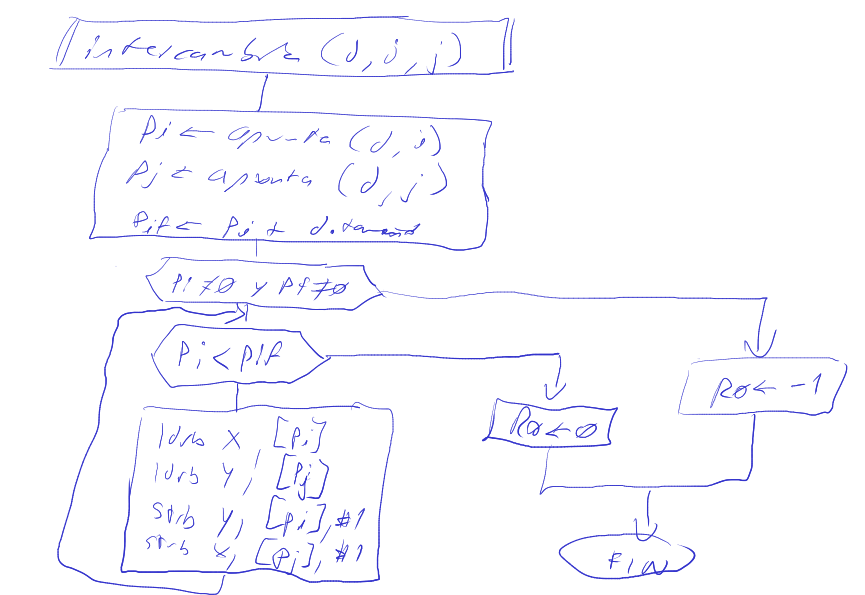 intercambia (d, i, j)
Pi ← apunta (d, i)
Pj ← apunta (d, j)
Pif ← Pi + d.tamaño
Pi ≠ 0 y Pf ≠ 0
Pi < Pif
R0 ← -1
R0 ← 0
ldrb X, [Pi]
ldrb Y, [Pj]
strb Y, [Pi], #1
strb X, [Pj], #1
FIN